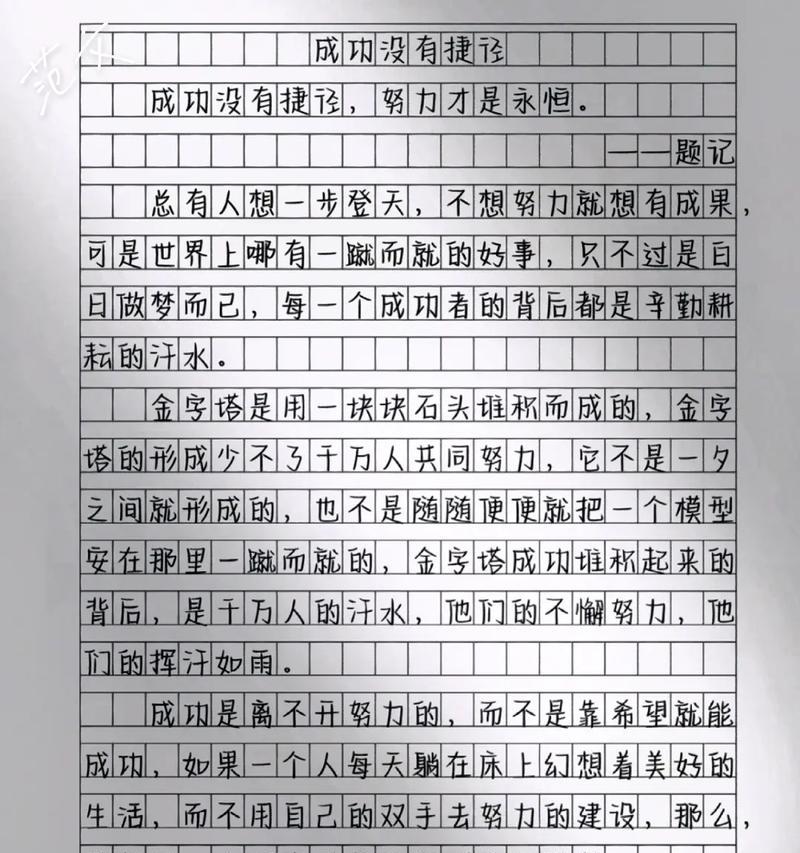 范文
成功没有捷径
成功没有捷径，努力才是永恒。
——题记
总有人想一步登天，不想努力就想有成果，
可是世界上哪有一蹴而就的好事，只不过是白
日做梦而己，每一个成功者的背后都是辛勤耕
耘的汗水。
金字塔是用一块块石头堆积而成的，金字
塔的形成少不了千万人共同努力，它不是一夕
之间就形成的，也不是随随便便就把一个模型
安在那里一蹴而就的，金字塔成功堆积起来的
背后，是千万人的汗水，他们的不懈努力，他
们的挥汗如雨。
成功是离不开努力的，而不是靠希望就能
成功，如果一个人每天躺在床上幻想着美好的
生活，而不用自己的双手去努力的建设，那么，